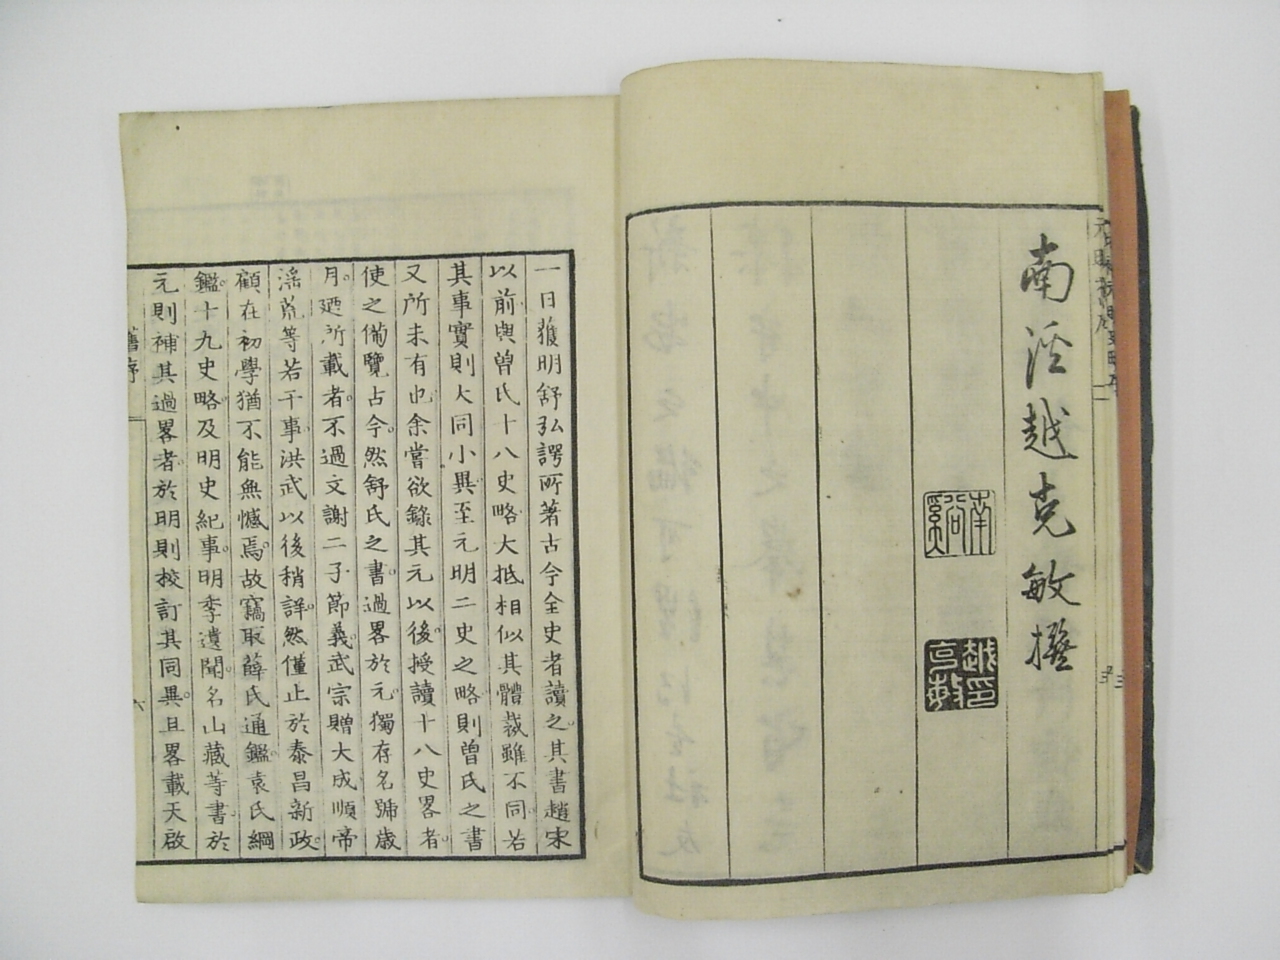 南溪越克敏撰
南谿
越印克敏
一日獲明舒弘諤所著古今全史者讀之其書趙宋
以前與曾氏十八史略大抵相似其體裁雖不同若
其事實則大同小異至元明二史之略則曾氏之書
又所未有也余嘗欲錄其元以後授讀十八史畧者
使之備覽古今然舒氏之書過畧於元獨存名號歲
月廼所載者不過文謝二子節義武宗贈大成順帝
滛荒等若干事洪武以後稍詳然僅止於泰昌新政
顧在初學猶不能無憾焉故竊取薛氏通鑑袁氏綱
鑑十九史略及明史紀事明季遺聞名山藏等書於
元則補其過畧者於明則校訂其同異且畧載天啟
舊序